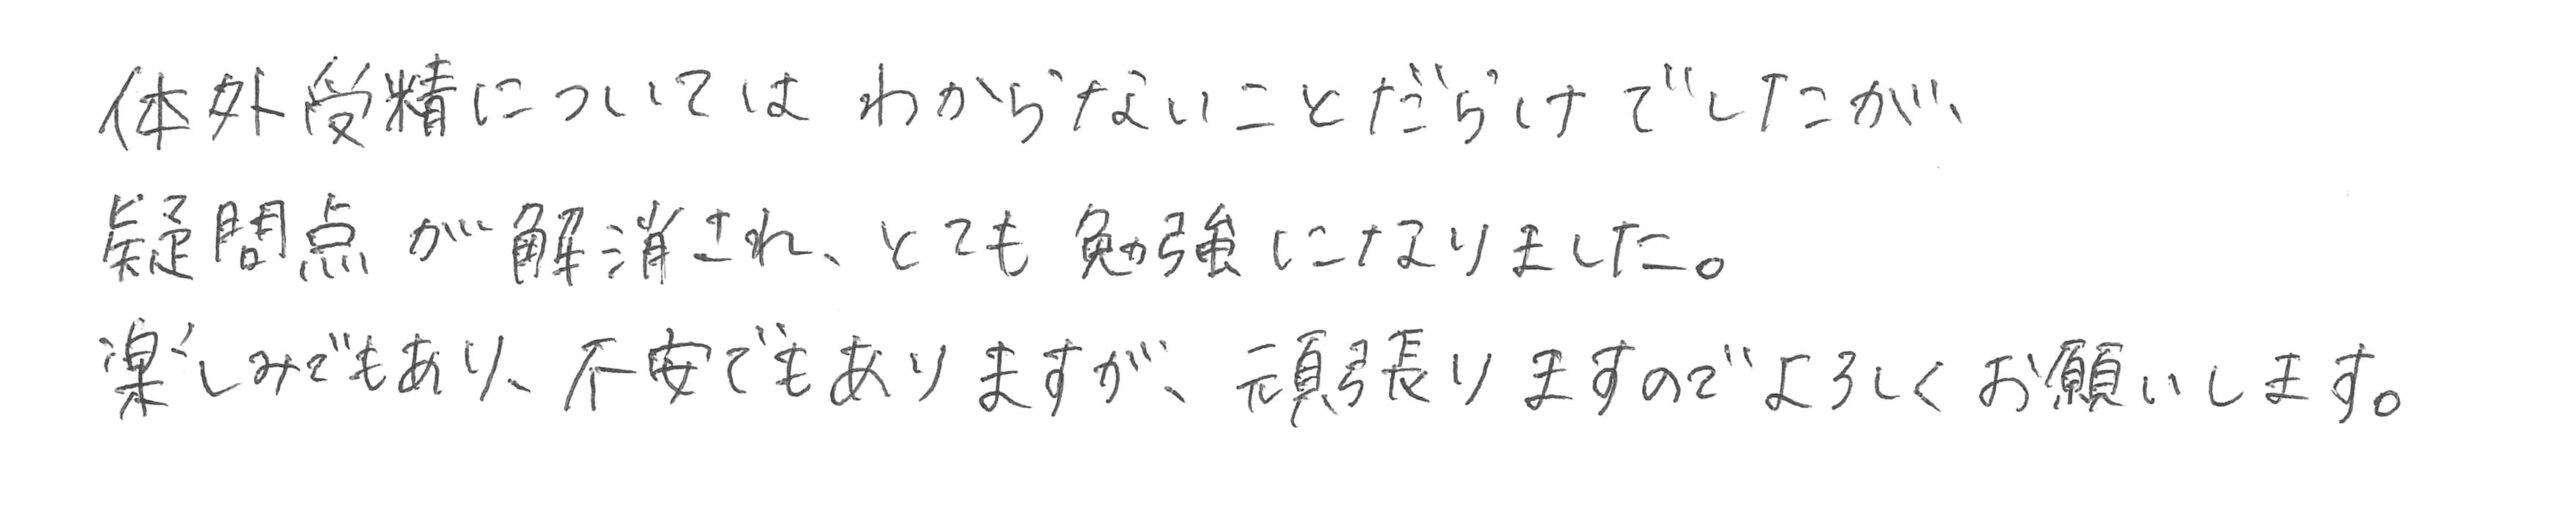 体外受精についてはわからないことだらけでしたが、
疑問点が解消され、とても勉強になりました。
楽しみでもあり、不安でもありますが、頑張りますのでよろしくお願いします。